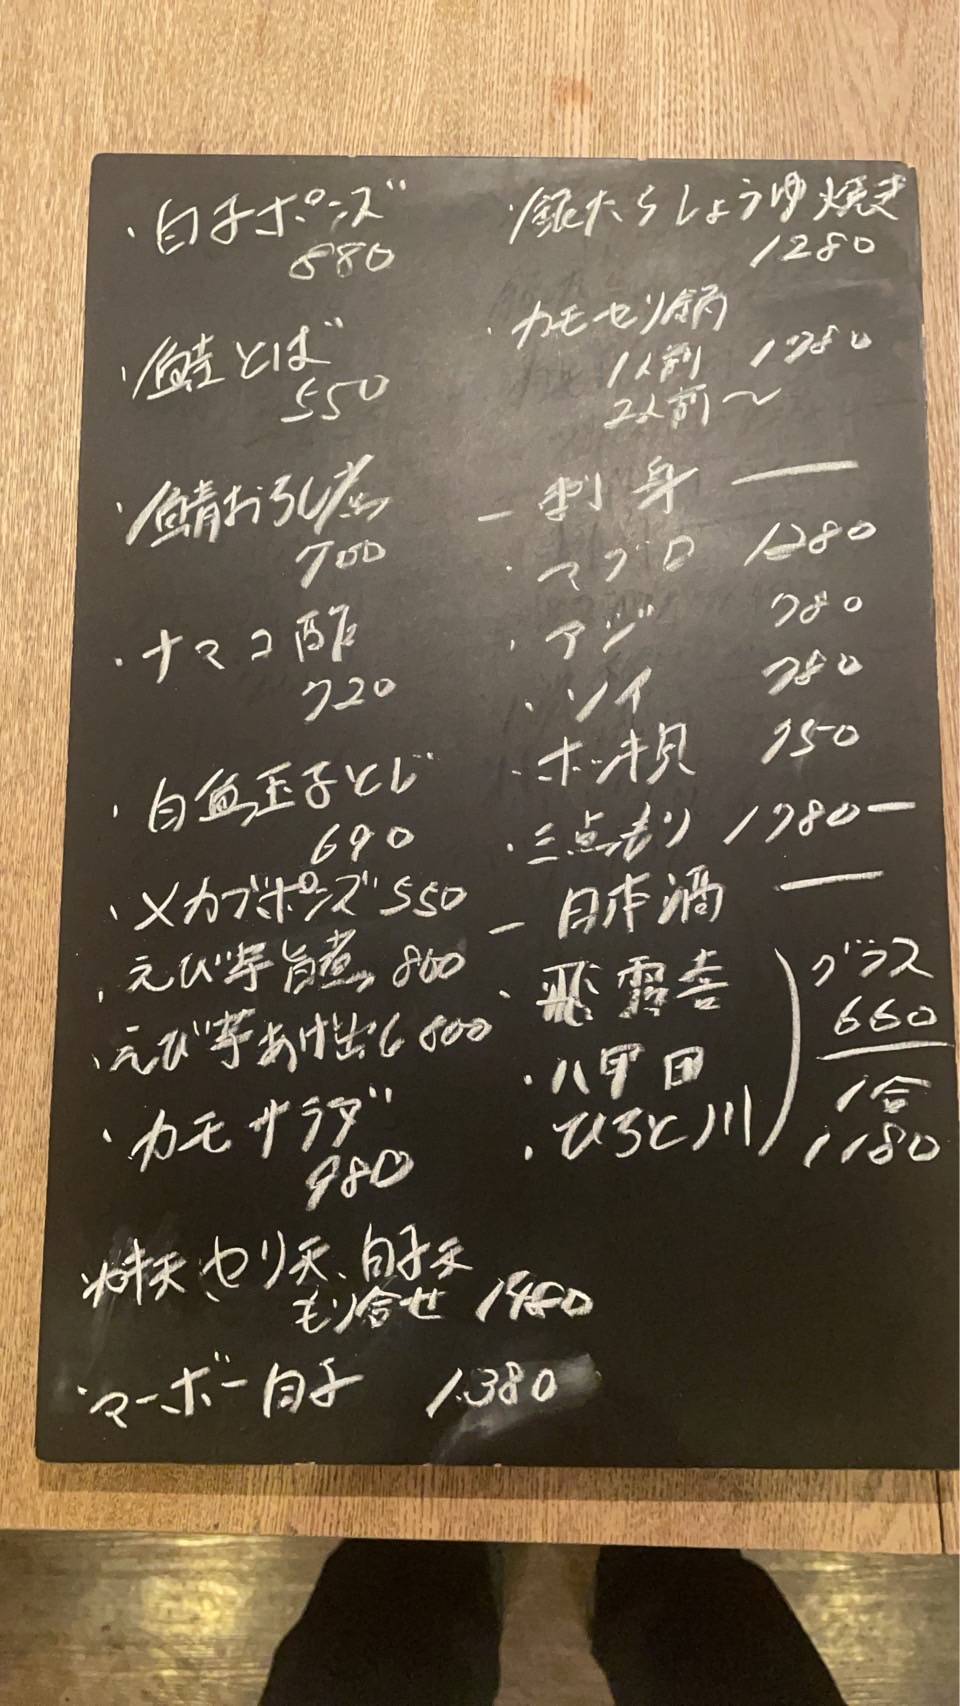 ・白子ポンズ
880
・鮭とば
550
・鯖おろし煮
700
・ナマコ酢
720
・白魚玉子とじ
690
・メカブポンズ 550
・えび芋旨煮 800
・えび芋あげ出し 800
・カモサラダ
980
セリ天、白子天
もり合せ 1480
・マーボー白子 1,380
・銀たらしょうゆ焼き
1280
・カモセリ鍋
1人前 1780
2人前〜
ー 刺身 ー
・マグロ 1280
・アジ 780
・ソイ 780
・ホッキ貝 750
・三点もり 1780ー
ー 日本酒 ー
・飛露喜
・八甲田
・ひろと川
グラス
660
1合
1180